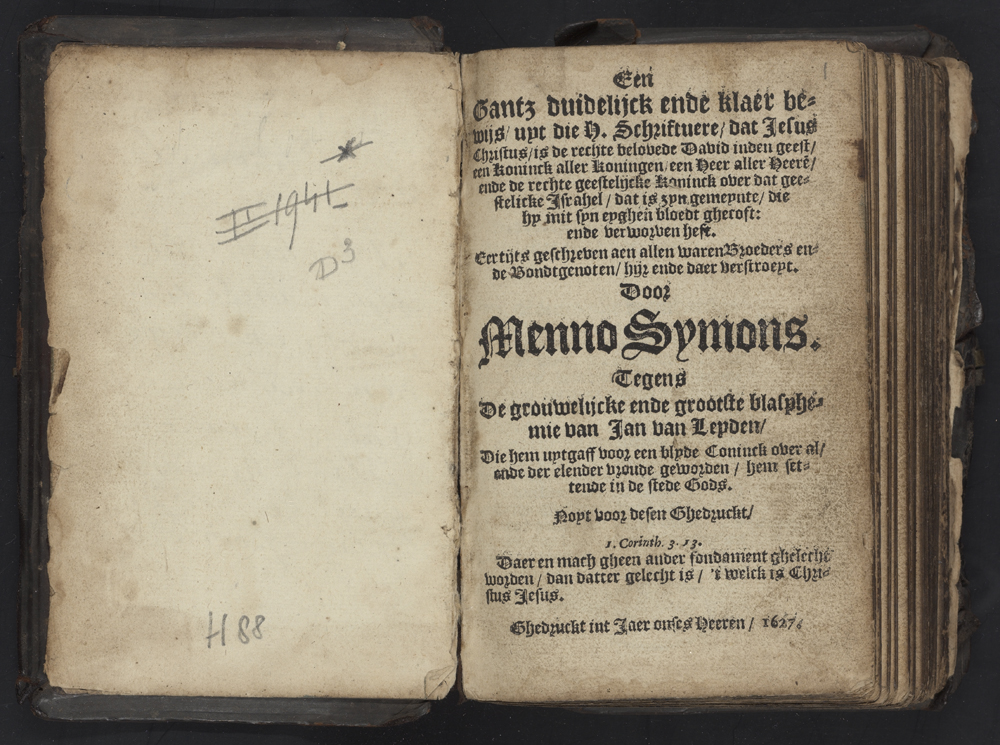 II 1941
D3
H 88
1
Een
Gantz duidelijck ende klaer be-
wijs/ uyt die H. Schriftuere/ dat Jesus
Christus/ is de rechte belovede David inden geest/
een Koninck aller Koningen/ een Heer aller Heerē/
ende de rechte geestelijcke Koninck over dat gee-
stelicke Israhel / dat is zyn gemeynte/ die
hy mit syn eyghen bloedt ghecoft:
ende verworven heft.
Eertijts geschreven aen allen waren Broeders en-
de Bondtgenoten/ hijr ende daer verstroeyt.
Door
Menno Symons.
Tegens
De grouwelijcke ende grootste blasphe-
mie van Jan van Leyden/
Die hem uytgaff voor een blyde Coninck over al/
ende der elender vroude geworden / hem set-
tende in de stede Gods.
Noyt voor desen Ghedruckt/
1. Corinth. 3. 13.
Daer en mach gheen ander fondament ghelecht
worden / dan datter gelecht is / 't welck is Chri-
stus Jesus.
Ghedruckt int Jaer onses Heeren / 1627.